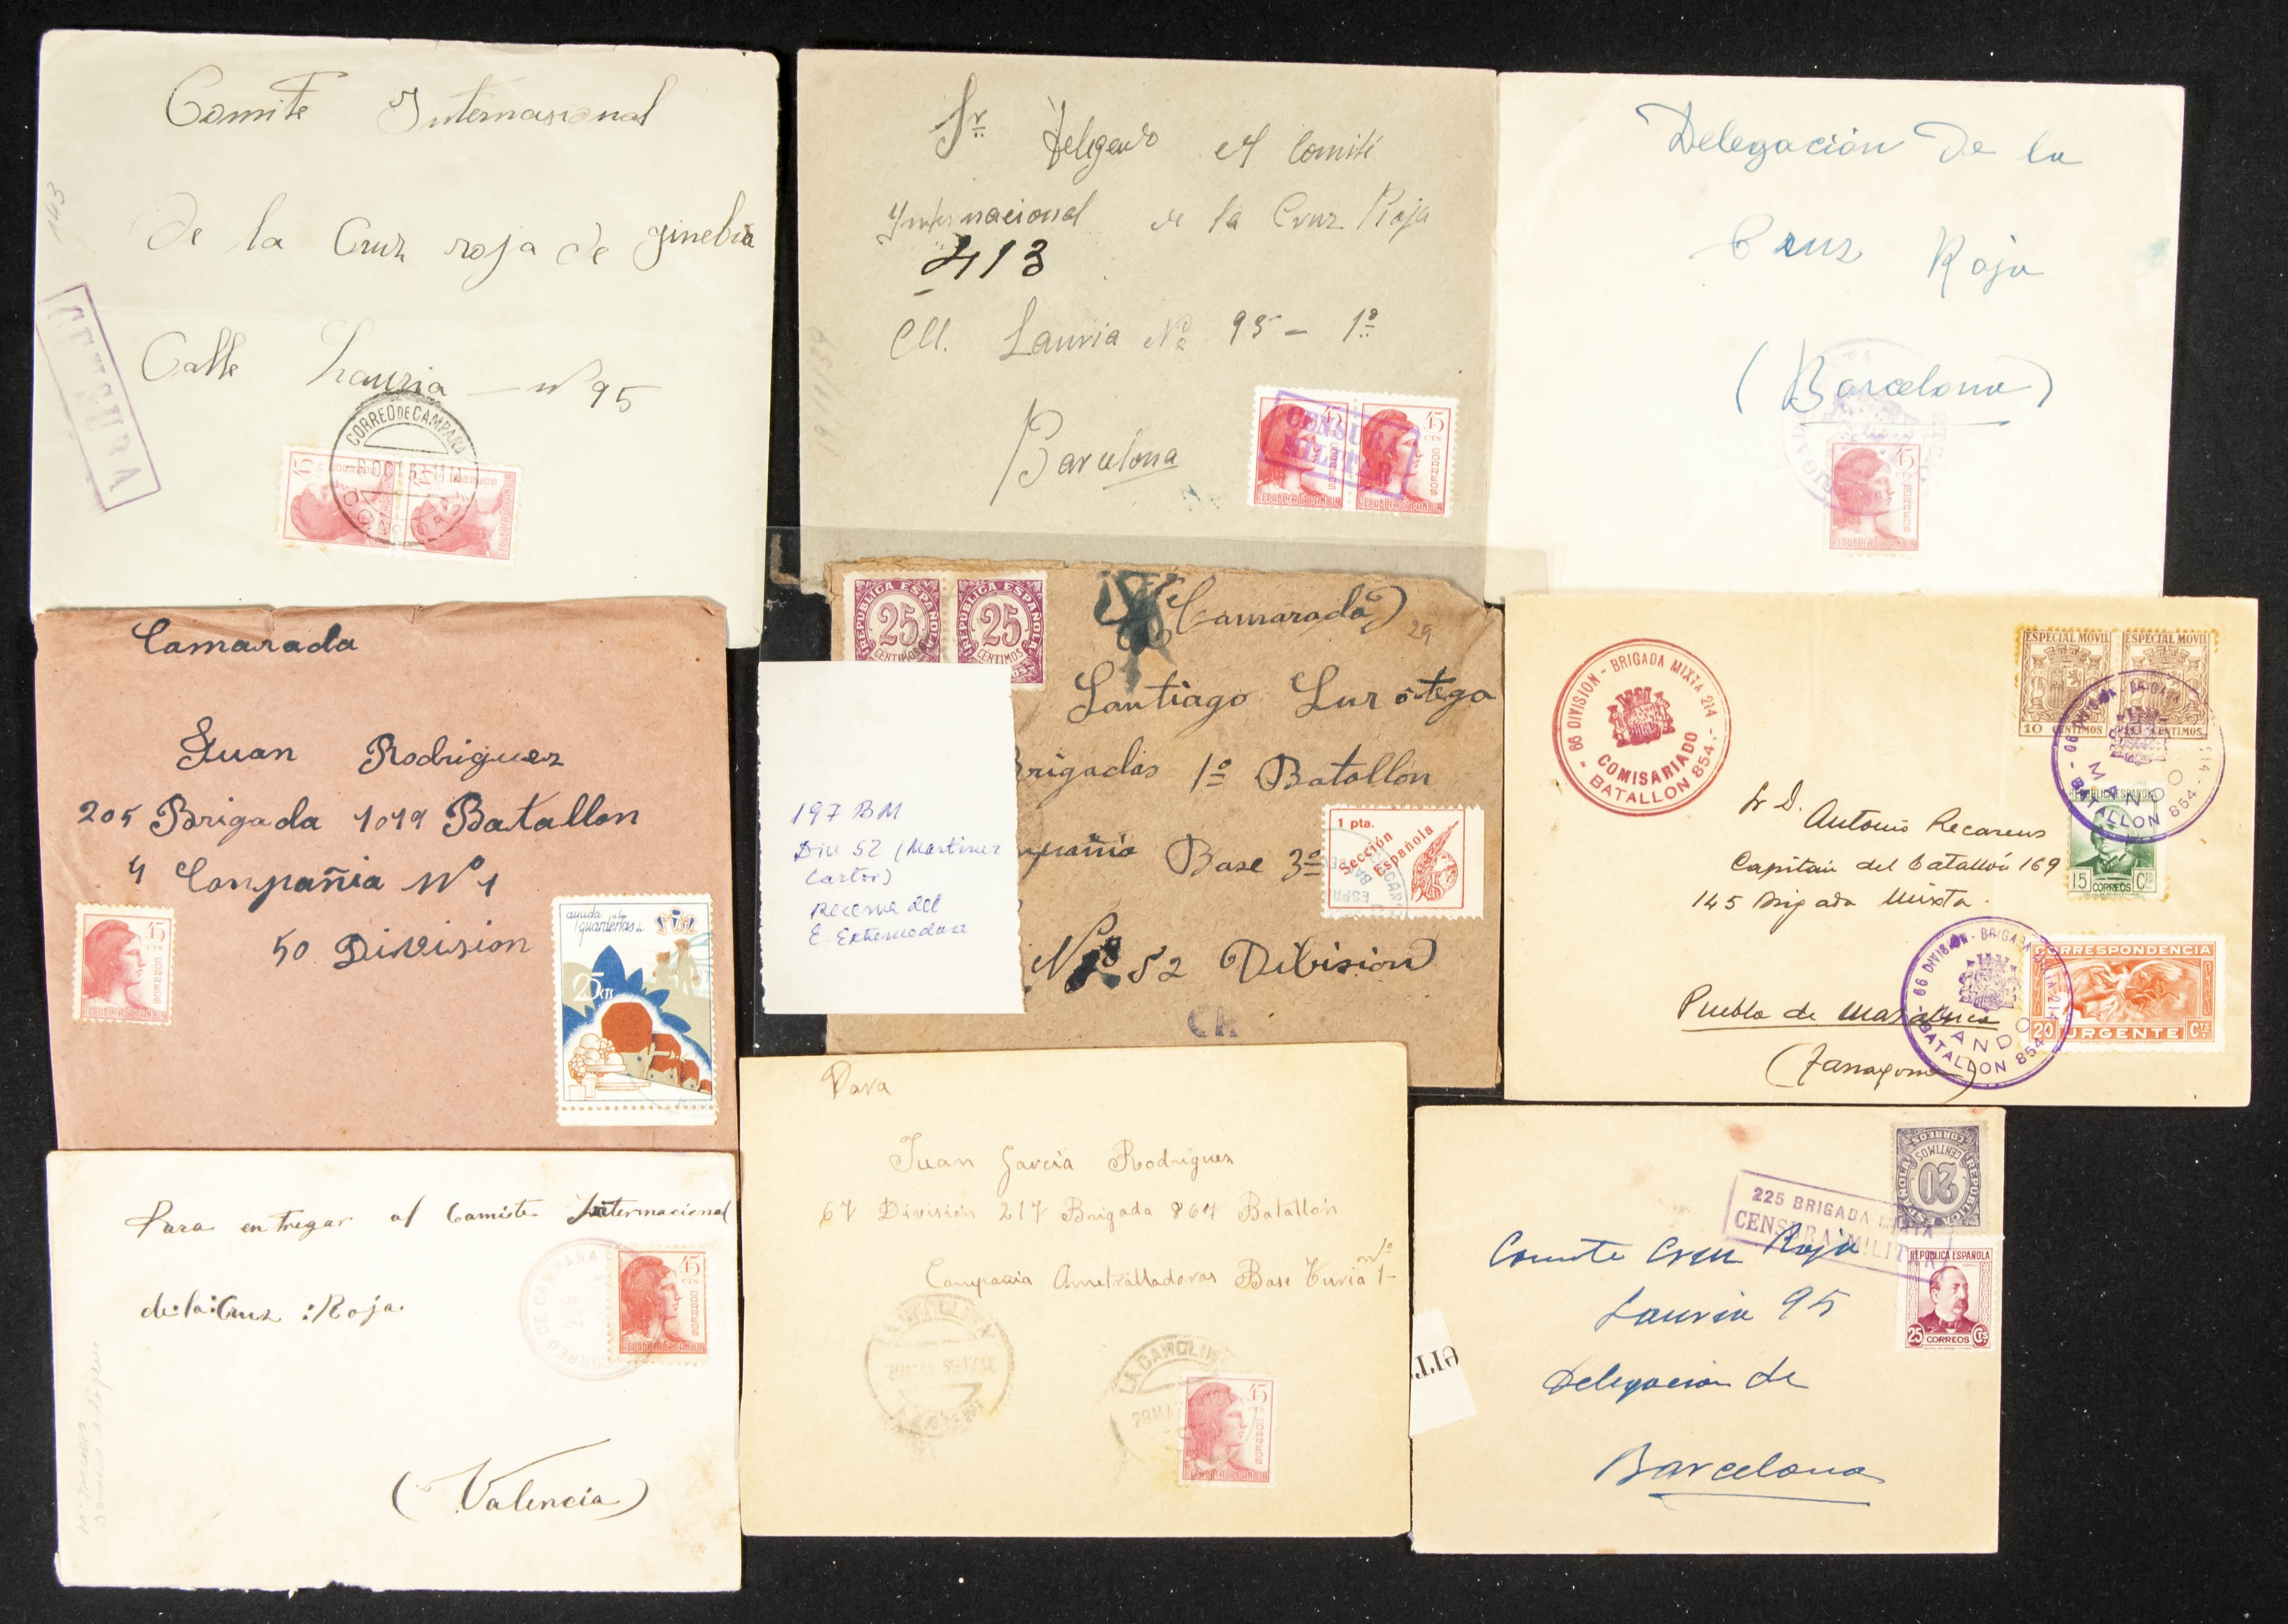 Comite Internasional
de la Cruz roja de Ginebra
Calle Lauria — nº 95
143
CENSURA
CORREO DE CAMPAÑA
45
45
Sr. Delegado el Comité
Internacional de la Cruz Roja
413
Cll. Lauria Nº 95 - 1º
Barcelona
CENSURA
MILITAR
45 CTS CORREOS
REPUBLICA ESPAÑOLA
45 CTS CORREOS
REPUBLICA ESPAÑOLA
Delegación De la
Cruz Roja
(Barcelona)
45
CORREOS
REPUBLICA ESPAÑOLA
Camarada
Juan Rodriguez
205 Brigada 1019 Batallon
4 Compañia Nº 1
50 Division
45 CTS CORREOS
REPUBLICA ESPAÑOLA
ayuda
guarderias
25 CTS
REPUBLICA ESPAÑOLA
25
CENTIMOS
REPUBLICA ESPAÑOLA
25
CENTIMOS
(Camarada)
29
Santiago Lur ótega
Brigadas 1º Batallón
Base 3º
Nº 8 52 Division)
1 pta.
Sección
Española
197 BM
Div 52 (Martinez
Cartor)
Reserva del
E. Extremadura
66 DIVISION - BRIGADA MIXTA 214
COMISARIADO
- BATALLON 854.-
ESPECIAL MOVIL
10 CENTIMOS
ESPECIAL MOVIL
10 CENTIMOS
66 DIVISION - BRIGADA MIXTA 214
MANDO
BATALLON 854
REPUBLICA ESPAÑOLA
15 CORREOS CTS
Sr D. Antonio Recarens
Capitan del Batallón 169
145 Brigada Mixta.
Puebla de Masaluca
(Tarragona)
66 DIVISION - BRIGADA MIXTA 214
MANDO
BATALLON 854
CORRESPONDENCIA
20 URGENTE CTS
Para entregar al Comite Internacional
de:la:Cruz :Roja.
(Valencia)
CORREO DE CAMPAÑA
45 CTS CORREOS
REPUBLICA ESPAÑOLA
Para
Juan García Rodriguez
67 División 217 Brigada 867 Batallón
Compañia Ametralladoras Base Turia nº 1-
LA CAROLINA
29 MAR
45 CTS CORREOS
REPUBLICA ESPAÑOLA
CORREOS
20
CENTIMOS
REPUBLICA ESPAÑOLA
225 BRIGADA MIXTA
CENSURA MILITAR
REPUBLICA ESPAÑOLA
25 CORREOS CTS
Comite Cruz Roja
Lauria 95
Delegacion de
Barcelona